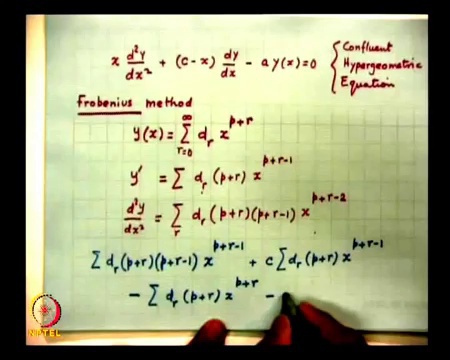 x d²y/dx² + (c-x) dy/dx - a y(x) = 0 { Confluent Hypergeometric Equation
Frobenius method
y(x) = ∑_{r=0}^{∞} d_r x^{p+r}
y' = ∑ d_r (p+r) x^{p+r-1}
d²y/dx² = ∑_r d_r (p+r)(p+r-1) x^{p+r-2}
∑ d_r (p+r)(p+r-1) x^{p+r-1} + c ∑ d_r (p+r) x^{p+r-1}
- ∑ d_r (p+r) x^{p+r} -
NPTEL